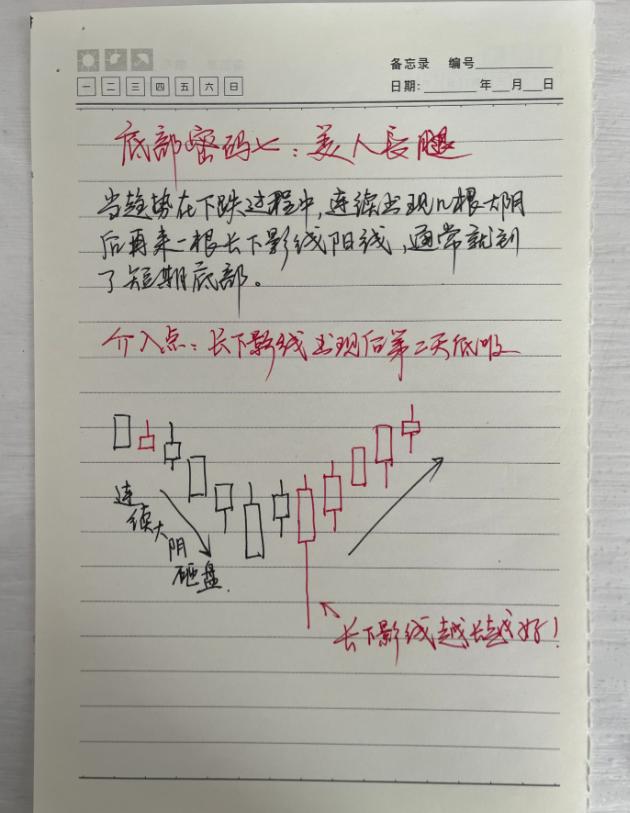 备忘录 编号
一 二 三 四 五 六 日
日期: 年 月 日
底部密码七：美人长腿
当趋势在下跌过程中，连续出现n根大阴
后再来一根长下影线阳线，通常就到
了短期底部。
介入点：长下影线出现后第二天低吸
连续大阴
砸盘
长下影线越长越好！